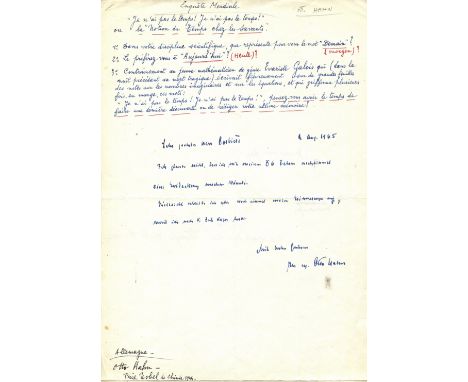 Enquête Mondiale
O. HAHN
"Je n'ai pas le temps! Je n'ai pas le temps!"
ou la "Notion du Temps chez les Savants".
1: Dans votre discipline scientifique, que représente pour vous le mot "Demain"?
(morgen)?
2: Le préférez-vous à "Aujourd'hui"? (Heute)?
3: Contrairement au jeune mathématicien de génie Evariste Galois qui (dans la
nuit précédant sa mort tragique) écrivait fiévreusement sur de grandes feuilles
des notes sur les nombres imaginaires et sur les équations, et qui griffonna plusieurs
fois, en marge, ces mots:
"Je n'ai pas le temps! Je n'ai pas le temps!", pensez-vous avoir le temps de
faire une dernière découverte ou de rédiger votre ultime mémoire?
Sehr geehrter Herr
4 Aug. 1965
Ich glaube nicht, dass ich mit meinen 86 Jahren nochmal
eine Entdeckung machen könnte.
Vielleicht schreibe ich aber noch einmal meine Erinnerungen auf,
Mit besten
Ihr Otto Hahn
Allemagne
Otto Hahn
Prix Nobel de Chimie 1944